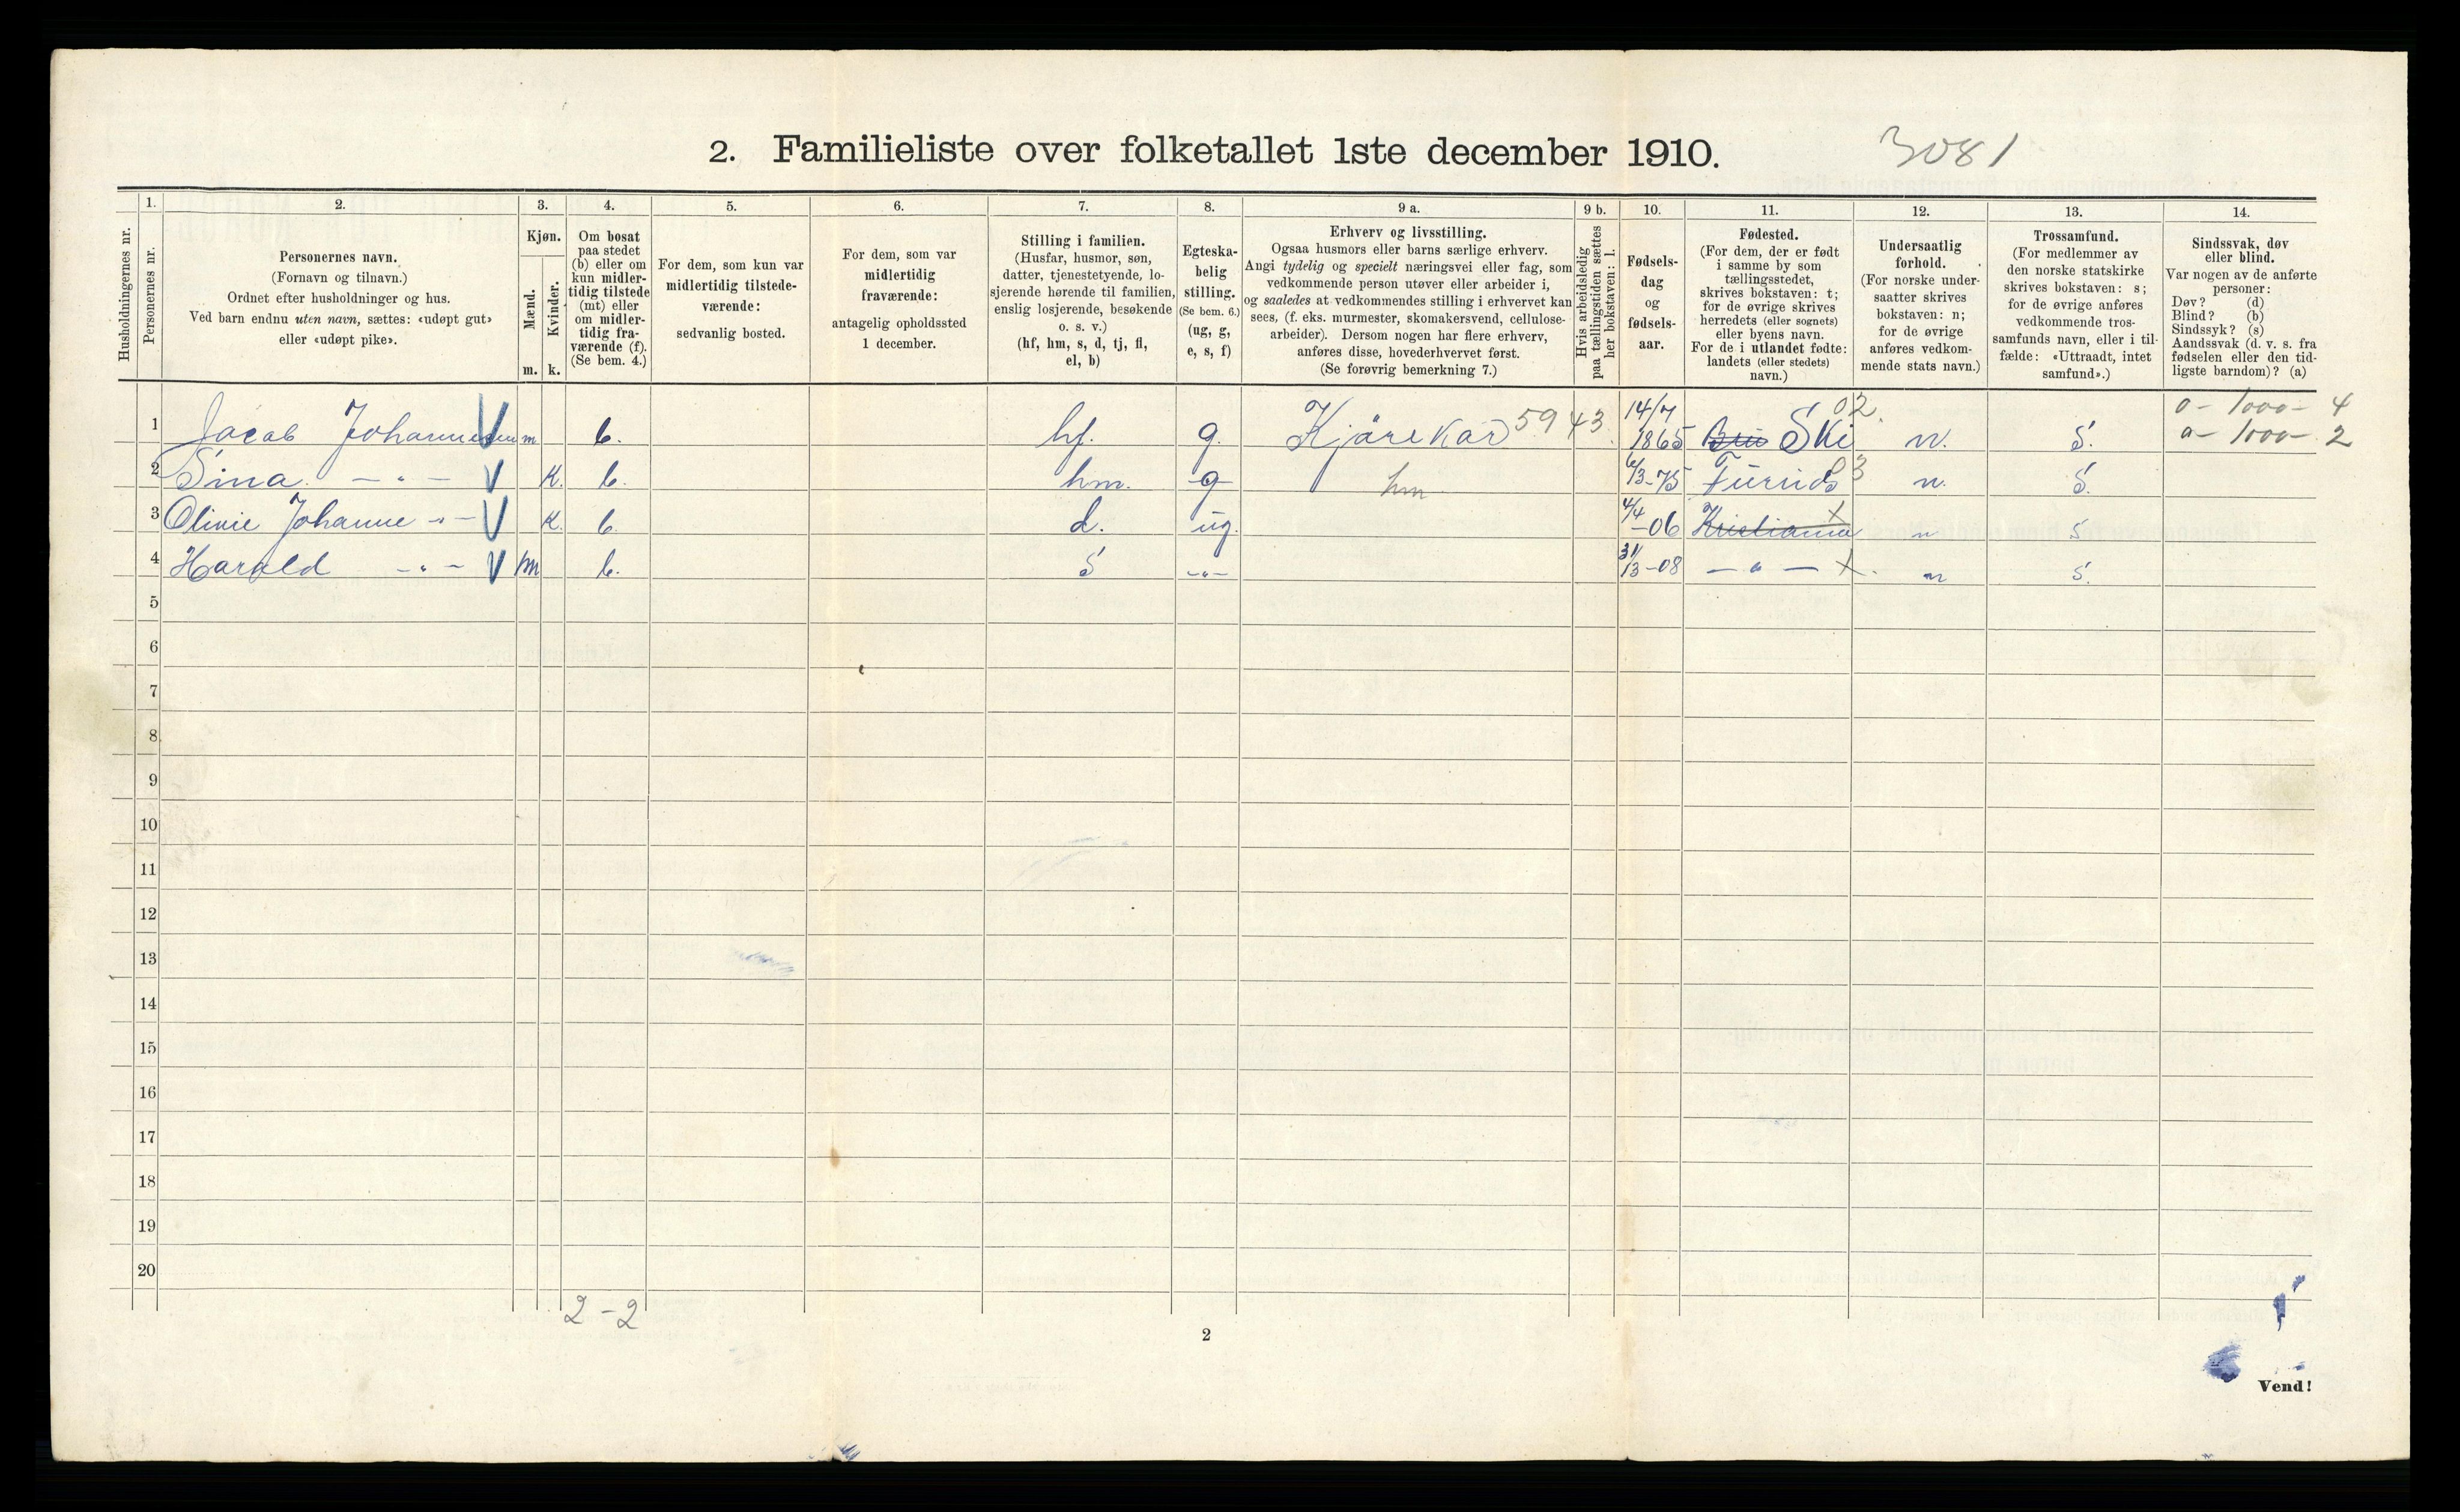 2. Familieliste over folketallet 1ste december 1910. 3081
Husholdningernes nr.
1.
Personernes nr.
2.
Personernes navn.
(Fornavn og tilnavn.)
Ordnet efter husholdninger og hus.
Ved barn endnu uten navn, sættes: «udøpt gut»
eller «udøpt pike».
3.
Kjøn.
Mænd.
Kvinder.
m. k.
4.
Om bosat
paa stedet
(b) eller om
kun midler-
tidig tilstede
(mt) eller
om midler-
tidig fra-
værende (f).
(Se bem. 4.)
5.
For dem, som kun var
midlertidig tilstede-
værende:
sedvanlig bosted.
6.
For dem, som var
midlertidig
fraværende:
antagelig opholdssted
1 december.
7.
Stilling i familien.
(Husfar, husmor, søn,
datter, tjenestetyende, lo-
sjerende hørende til familien,
enslig losjerende, besøkende
o. s. v.)
(hf, hm, s, d, tj, fl,
el, b)
8.
Egteska-
belig
stilling.
(Se bem. 6.)
(ug, g,
e, s, f)
9 a.
Erhverv og livsstilling.
Ogsaa husmors eller barns særlige erhverv.
Angi tydelig og specielt næringsvei eller fag, som
vedkommende person utøver eller arbeider i,
og saaledes at vedkommendes stilling i erhvervet kan
sees, (f. eks. murmester, skomakersvend, cellulose-
arbeider). Dersom nogen har flere erhverv,
anføres disse, hovederhvervet først.
(Se forøvrig bemerkning 7.)
9 b.
Hvis arbeidsledig
paa tællingstiden sættes
her bokstaven: l.
10.
Fødsels-
dag
og
fødsels-
aar.
11.
Fødested.
(For dem, der er født
i samme by som
tællingsstedet,
skrives bokstaven: t;
for de øvrige skrives
herredets (eller sognets)
eller byens navn.
For de i utlandet fødte:
landets (eller stedets)
navn.)
12.
Undersaatlig
forhold.
(For norske under-
saatter skrives
bokstaven: n;
for de øvrige
anføres vedkom-
mende stats navn.)
13.
Trossamfund.
(For medlemmer av
den norske statskirke
skrives bokstaven: s;
for de øvrige anføres
vedkommende tros-
samfunds navn, eller i til-
fælde: «Uttraadt, intet
samfund».)
14.
Sindssvak, døv
eller blind.
Var nogen av de anførte
personer:
Døv? (d)
Blind? (b)
Sindssyk? (s)
Aandssvak (d. v. s. fra
fødselen eller den tid-
ligste barndom)? (a)
1 Jacob Johannesen m b. hf. g. Kjørekar 5943 14/7 1865 Ski 02 n. S. o- 1000- 4
a- 1000- 2
2 Sina - " - k. b. hm. g hm 6/3-75 n. S.
3 Olivie Johanne - " - k. b. d. ug. 4/4-06 Kristiania n S
4 Harald - " - m b. S - " - 31/3-08 - " - n S.
5
6
7
8
9
10
11
12
13
14
15
16
17
18
19
20
2 - 2
2
Vend!